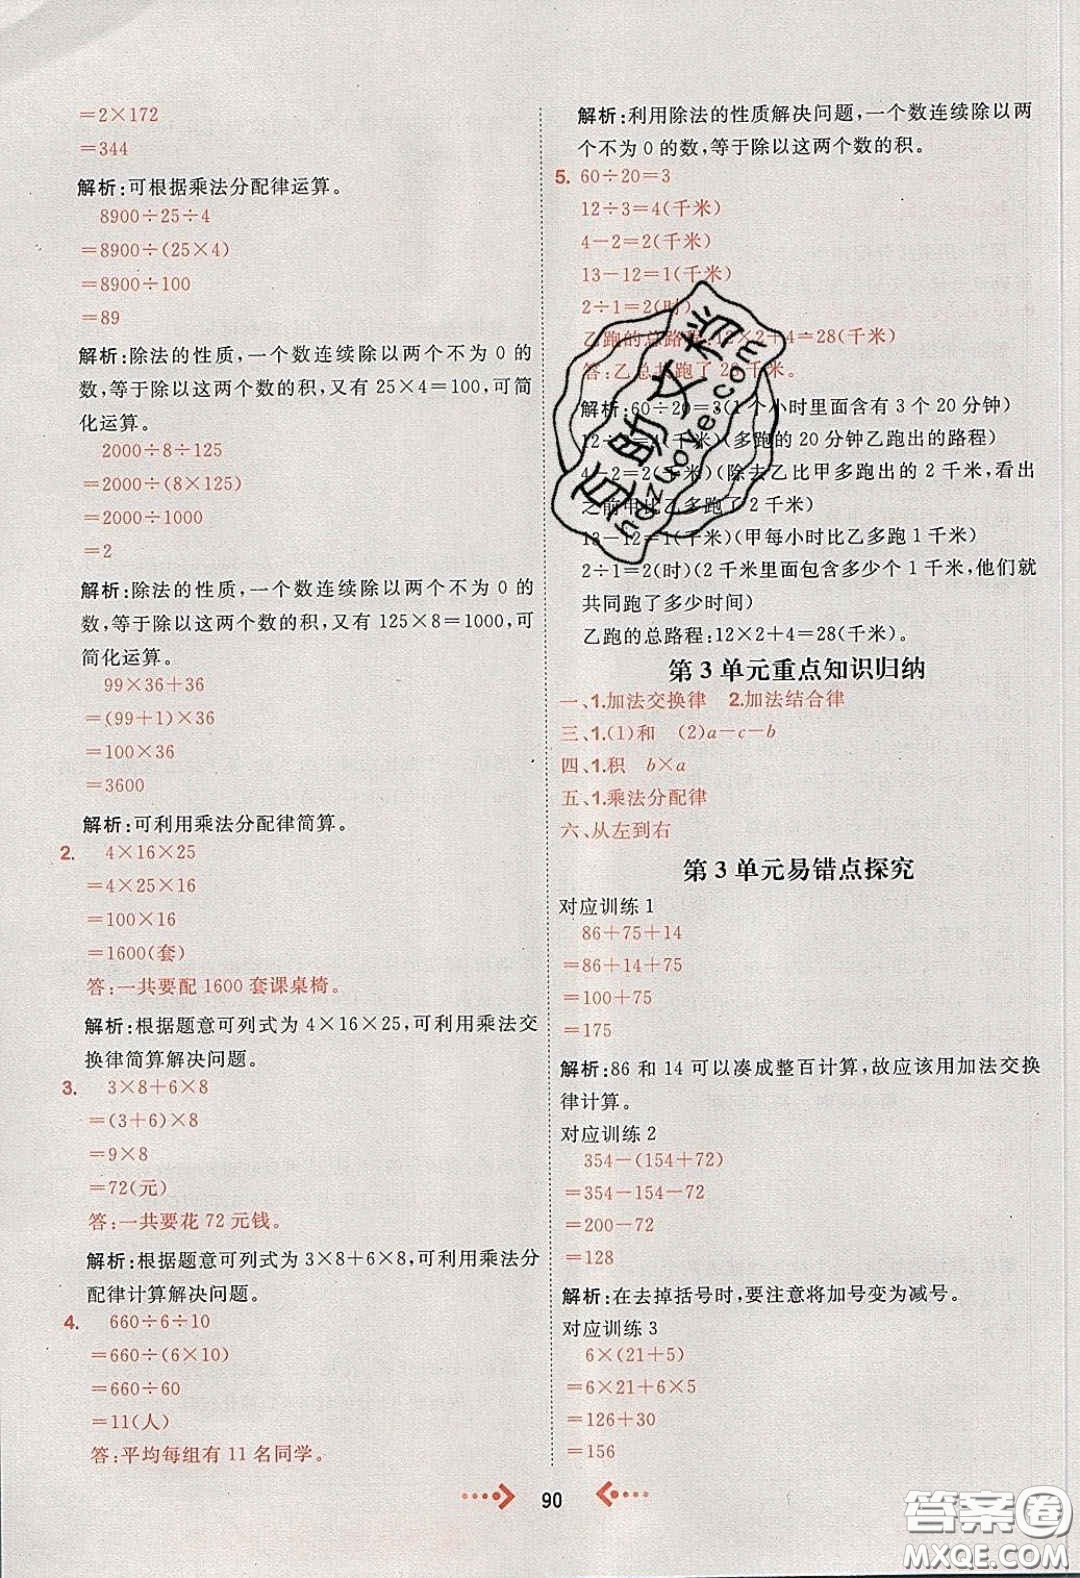 =2×172
=344
解析:可根据乘法分配律运算。
8900÷25÷4
=8900÷(25×4)
=8900÷100
=89
解析:除法的性质,一个数连续除以两个不为 0 的
数,等于除以这两个数的积,又有 25×4=100,可简
化运算。
2000÷8÷125
=2000÷(8×125)
=2000÷1000
=2
解析:除法的性质,一个数连续除以两个不为 0 的
数,等于除以这两个数的积,又有 125×8=1000,可
简化运算。
99×36+36
=(99+1)×36
=100×36
=3600
解析:可利用乘法分配律简算。
2. 4×16×25
=4×25×16
=100×16
=1600(套)
答:一共要配 1600 套课桌椅。
解析:根据题意可列式为 4×16×25,可利用乘法交
换律简算解决问题。
3. 3×8+6×8
=(3+6)×8
=9×8
=72(元)
答:一共要花 72 元钱。
解析:根据题意可列式为 3×8+6×8,可利用乘法分
配律计算解决问题。
4. 660÷6÷10
=660÷(6×10)
=660÷60
=11(人)
答:平均每组有 11 名同学。
解析:利用除法的性质解决问题,一个数连续除以两
个不为 0 的数,等于除以这两个数的积。
5. 60÷20=3
12÷3=4(千米)
4-2=2(千米)
13-12=1(千米)
2÷1=2(时)
乙跑的总路程:12×2+4=28(千米)
答:乙总共跑了 28 千米。
解析:60÷20=3(1 个小时里面含有 3 个 20 分钟)
12÷3=4(千米)(多跑的 20 分钟乙跑出的路程)
4-2=2(千米)(除去乙比甲多跑出的 2 千米,看出
之前甲比乙多跑了 2 千米)
13-12=1(千米)(甲每小时比乙多跑 1 千米)
2÷1=2(时)(2 千米里面包含多少个 1 千米,他们就
共同跑了多少时间)
乙跑的总路程:12×2+4=28(千米)。
第 3 单元重点知识归纳
一、1.加法交换律 2.加法结合律
三、1.(1)和 (2)a-c-b
四、1.积 b×a
五、1.乘法分配律
六、从左到右
第 3 单元易错点探究
对应训练 1
86+75+14
=86+14+75
=100+75
=175
解析:86 和 14 可以凑成整百计算,故应该用加法交换
律计算。
对应训练 2
354-(154+72)
=354-154-72
=200-72
=128
解析:在去掉括号时,要注意将加号变为减号。
对应训练 3
6×(21+5)
=6×21+6×5
=126+30
=156
90
百助文档
hdzuoye.com
答案圈
MXQE.COM